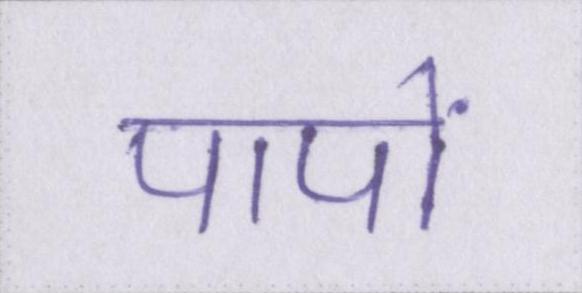 पापों